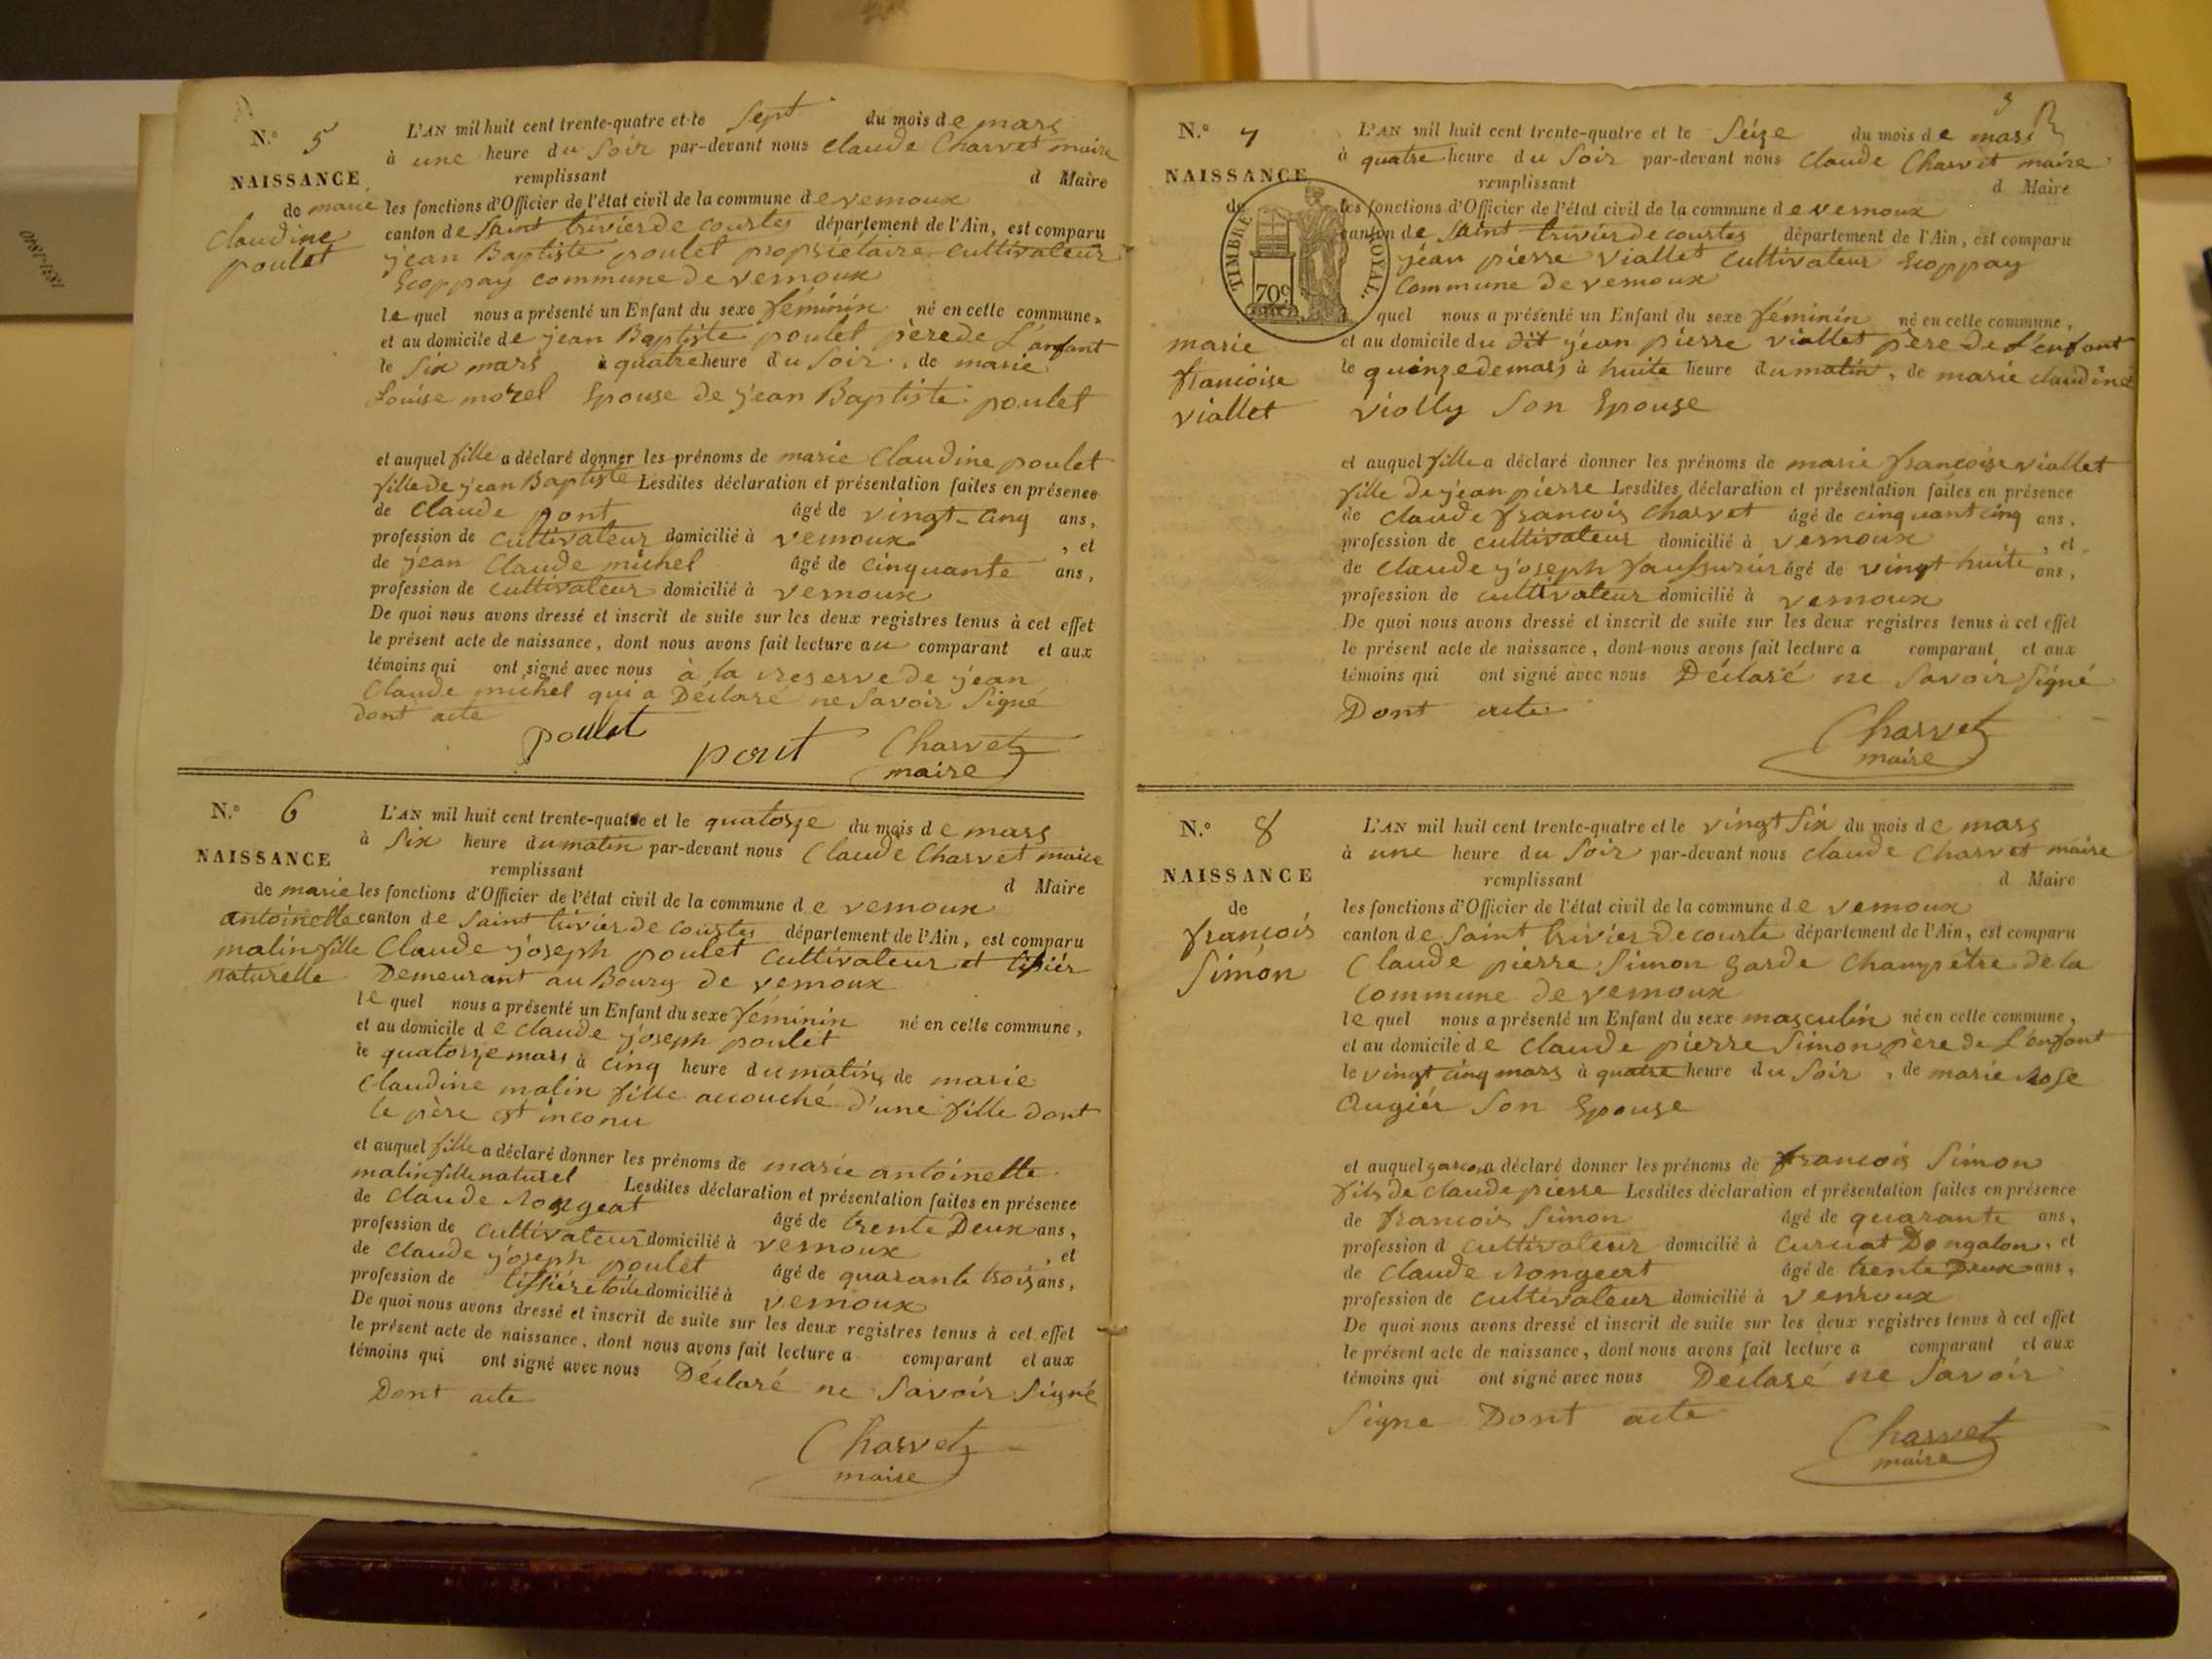 N.º 5
NAISSANCE
de marie
Claudine
poulet
L'AN mil huit cent trente-quatre et le Sept du mois de mars
à une heure du Soir par-devant nous Claude Charvet maire
remplissant d Maire
les fonctions d'Officier de l'état civil de la commune de vernoux
canton de Saint trivier de Courtes département de l'Ain, est comparu
jean Baptiste poulet propriétaire cultivateur
commune de vernoux
le quel nous a présenté un Enfant du sexe féminin né en cette commune,
et au domicile de jean Baptiste poulet père de L'anfant
le Six mars à quatre heure du Soir, de marie
Louise morel Epouse de jean Baptiste poulet
et auquel fille a déclaré donner les prénoms de marie Claudine poulet
fille de jean Baptiste Lesdites déclaration et présentation faites en présence
de Claude pont âgé de vingt-cinq ans,
profession de cultivateur domicilié à vernoux, et
de jean Claude michel âgé de cinquante ans,
profession de cultivateur domicilié à vernoux
De quoi nous avons dressé et inscrit de suite sur les deux registres tenus à cet effet
le présent acte de naissance, dont nous avons fait lecture au comparant et aux
témoins qui ont signé avec nous à la reserve de jean
Claude michel qui a Déclaré ne Savoir Signé
dont acte
poulet
pont
Charvet
maire
N.º 6
NAISSANCE
de marie
antoinette
malin fille
naturelle
L'AN mil huit cent trente-quatre et le quatorze du mois de mars
à Six heure du matin par-devant nous Claude Charvet maire
remplissant d Maire
les fonctions d'Officier de l'état civil de la commune de vernoux
canton de Saint trivier de Courtes département de l'Ain, est comparu
Claude joseph poulet cultivateur et
Demeurant au Bourg de vernoux
le quel nous a présenté un Enfant du sexe féminin né en cette commune,
et au domicile de claude joseph poulet
le quatorze mars à cinq heure du matin, de marie
Claudine malin fille accouché d'une fille dont
le père est inconu
et auquel fille a déclaré donner les prénoms de marie antoinette
malin fille naturel Lesdites déclaration et présentation faites en présence
de Claude Rongeat âgé de trente Deux ans,
profession de cultivateur domicilié à vernoux, et
de Claude joseph poulet âgé de quarante trois ans,
profession de domicilié à vernoux
De quoi nous avons dressé et inscrit de suite sur les deux registres tenus à cet effet
le présent acte de naissance, dont nous avons fait lecture a comparant et aux
témoins qui ont signé avec nous Déclaré ne Savoir Signé
Dont acte
Charvet
maire
3
N.º 7
NAISSANCE
de
marie
francoise
viallet
TIMBRE ROYAL.
70c
L'AN mil huit cent trente-quatre et le Seize du mois de mars
à quatre heure du Soir par-devant nous Claude Charvet maire
remplissant d Maire
les fonctions d'Officier de l'état civil de la commune de vernoux
canton de Saint trivier de courtes département de l'Ain, est comparu
jean pierre viallet cultivateur
Commune de vernoux
quel nous a présenté un Enfant du sexe féminin né en cette commune,
et au domicile du dit jean pierre viallet père de L'enfant
le quinze de mars à huite heure du matin, de marie claudine
violly Son Epouse
et auquel fille a déclaré donner les prénoms de marie francoise viallet
fille de jean pierre Lesdites déclaration et présentation faites en présence
de Claude francois Charvet âgé de cinquant cinq ans,
profession de cultivateur domicilié à vernoux, et
de Claude joseph âgé de vingt huite ans,
profession de cultivateur domicilié à vernoux
De quoi nous avons dressé et inscrit de suite sur les deux registres tenus à cet effet
le présent acte de naissance, dont nous avons fait lecture a comparant et aux
témoins qui ont signé avec nous Déclaré ne Savoir Signé
Dont acte
Charvet
maire
N.º 8
NAISSANCE
de
francois
Simon
L'AN mil huit cent trente-quatre et le vingt Six du mois de mars
à une heure du Soir par-devant nous Claude Charvet maire
remplissant d Maire
les fonctions d'Officier de l'état civil de la commune de vernoux
canton de Saint trivier de courte département de l'Ain, est comparu
Claude pierre Simon garde Champetre de la
Commune de vernoux
le quel nous a présenté un Enfant du sexe masculin né en cette commune,
et au domicile de Claude pierre Simon père de L'enfant
le vingt cinq mars à quatre heure du Soir, de marie Rose
Augier Son Epouse
et auquel garcon a déclaré donner les prénoms de francois Simon
fils de Claude pierre Lesdites déclaration et présentation faites en présence
de francois Simon âgé de quarante ans,
profession d cultivateur domicilié à Curciat Dongalon, et
de Claude Rongeat âgé de trente Deux ans,
profession de cultivateur domicilié à vernoux
De quoi nous avons dressé et inscrit de suite sur les deux registres tenus à cet effet
le présent acte de naissance, dont nous avons fait lecture a comparant et aux
témoins qui ont signé avec nous Declaré ne Savoir
Signe Dont acte
Charvet
maire